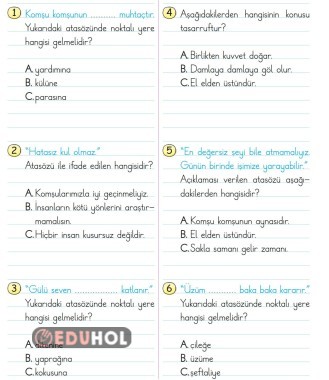 1 Komşu komşunun .............. muhtaçtır.
Yukarıdaki atasözünde noktalı yere
hangisi gelmelidir?
A. yardımına
B. külüne
C. parasına
2 "Hatasız kul olmaz."
Atasözü ile ifade edilen hangisidir?
A. Komşularımızla iyi geçinmeliyiz.
B. İnsanların kötü yönlerini araştır-
mamalısın.
C. Hiçbir insan kusursuz değildir.
3 "Gülü seven .................. katlanır."
Yukarıdaki atasözünde noktalı yere
hangisi gelmelidir?
EDUHOL
A.
B. yaprağına
C. kokusuna
4 Aşağıdakilerden hangisinin konusu
tasarruftur?
A. Birlikten kuvvet doğar.
B. Damlaya damlaya göl olur.
C. El elden üstündür.
5 "En değersiz şeyi bile atmamalıyız.
Günün birinde işimize yarayabilir."
Açıklaması verilen atasözü aşağı-
dakilerden hangisidir?
A. Komşu komşunun aynasıdır.
B. El elden üstündür.
C. Sakla samanı gelir zamanı.
6 "Üzüm .................. baka baka kararır."
Yukarıdaki atasözünde noktalı yere
hangisi gelmelidir?
A. çileğe
B. üzüme
C. şeftaliye